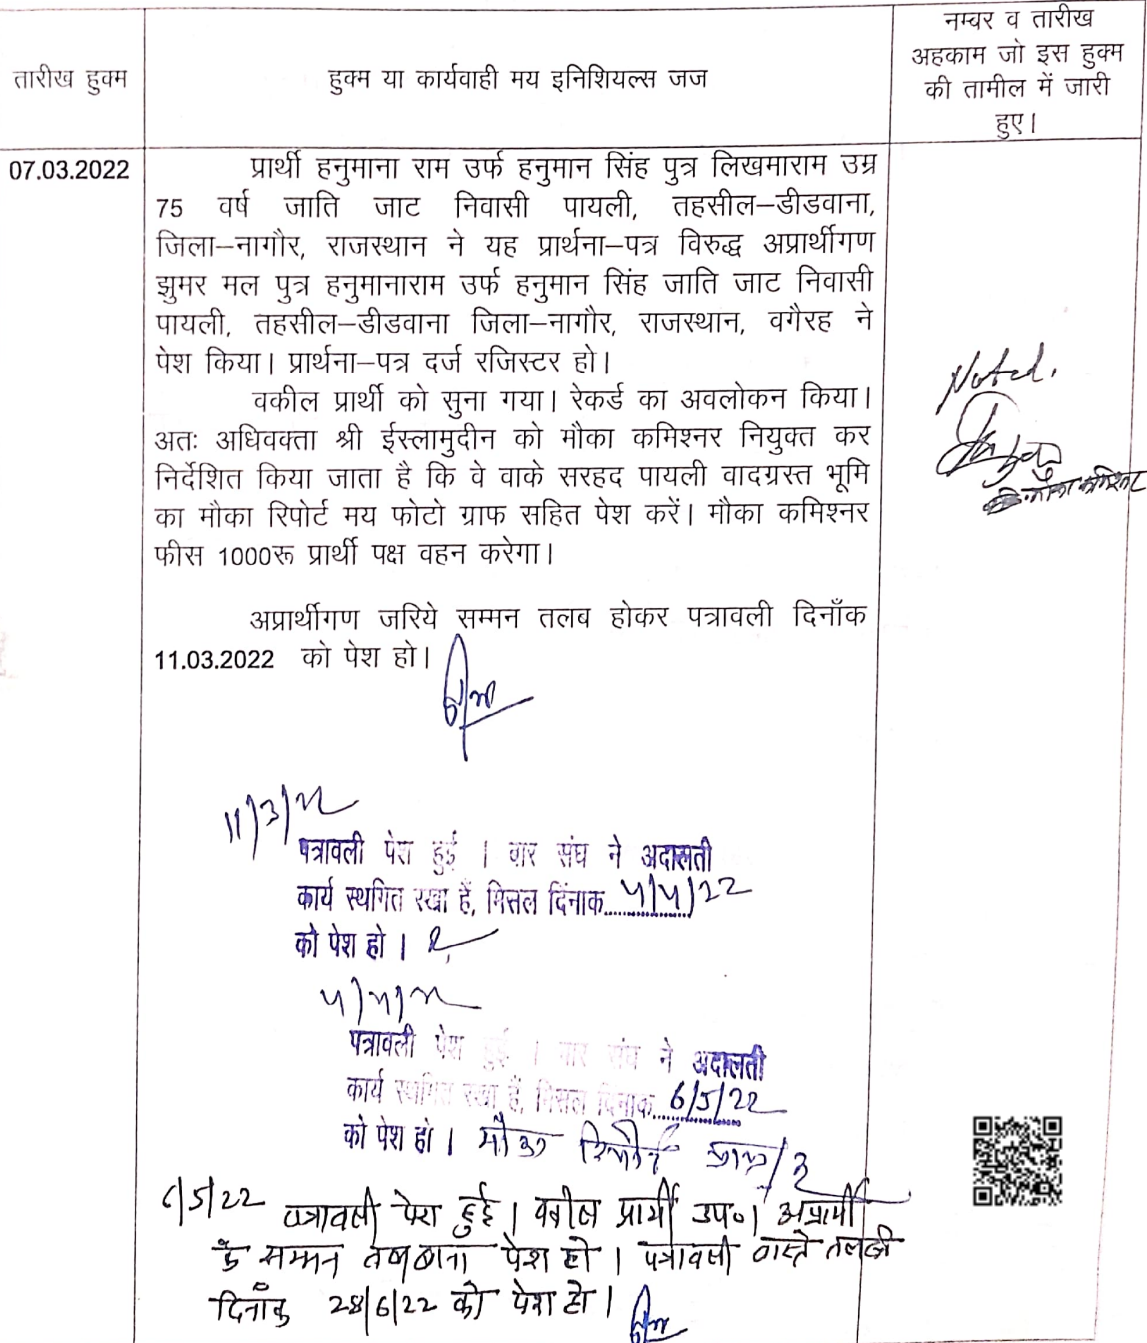 तारीख हुक्म
हुक्म या कार्यवाही मय इनिशियल्स जज
नम्बर व तारीख
अहकाम जो इस हुक्म
की तामील में जारी
हुए।
07.03.2022
प्रार्थी हनुमाना राम उर्फ हनुमान सिंह पुत्र लिखमाराम उम्र
75 वर्ष जाति जाट निवासी पायली, तहसील–डीडवाना,
जिला–नागौर, राजस्थान ने यह प्रार्थना–पत्र विरुद्ध अप्रार्थीगण
झुमर मल पुत्र हनुमानाराम उर्फ हनुमान सिंह जाति जाट निवासी
पायली, तहसील–डीडवाना जिला–नागौर, राजस्थान, वगैरह ने
पेश किया। प्रार्थना–पत्र दर्ज रजिस्टर हो।
वकील प्रार्थी को सुना गया। रेकर्ड का अवलोकन किया।
अतः अधिवक्ता श्री ईस्लामुदीन को मौका कमिश्नर नियुक्त कर
निर्देशित किया जाता है कि वे वाके सरहद पायली वादग्रस्त भूमि
का मौका रिपोर्ट मय फोटो ग्राफ सहित पेश करें। मौका कमिश्नर
फीस 1000रू प्रार्थी पक्ष वहन करेगा।
अप्रार्थीगण जरिये सम्मन तलब होकर पत्रावली दिनाँक
11.03.2022 को पेश हो।
Noted.
मौका कमिश्नर
11/3/22
पत्रावली पेश हुई । बार संघ ने अदालती
कार्य स्थगित रखा हैं, मिसल दिंनाक 4/4/22
को पेश हो ।
4/4/22
पत्रावली पेश हुई । बार संघ ने अदालती
कार्य स्थगित रखा हैं, मिसल दिंनाक 6/5/22
को पेश हो । मौका रिपोर्ट प्राप्त
6/5/22 पत्रावली पेश हुई। वकील प्रार्थी उप०। अप्रार्थी
के सम्मन तलबाना पेश हो। पत्रावली वास्ते तलबी
दिनाँक 28/6/22 को पेश हो।